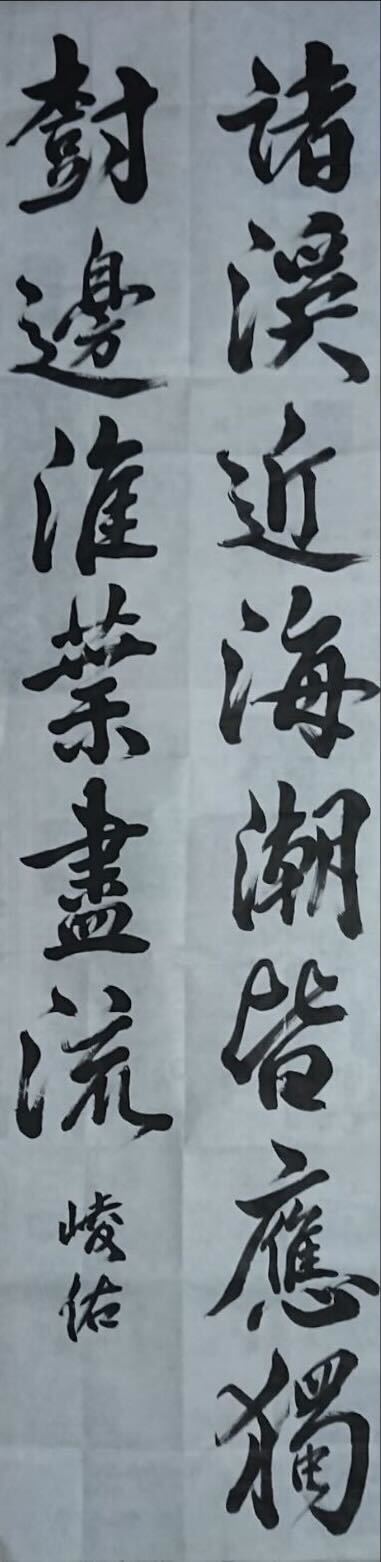 諸溪近海潮皆應獨
樹邊淮葉盡流
崚佑